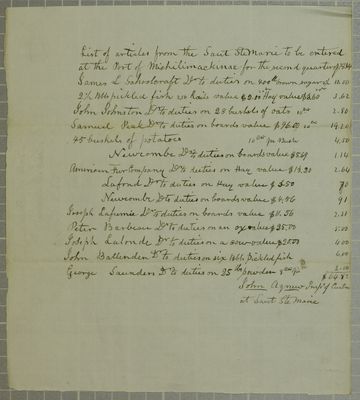 List of articles from the Saut Ste Marie to be entered
at the Port of Michilimackinac for the second quarter of 1834
James L Schoolcraft Dr to duties on 400 lb brown sugar 10.00
2½ bbls pickled fish 20 Rails value $2.00 Hay value $8.60 3.62
John Johnston Dr to duties on 28 bushels of oats 10 cts 2.80
Samuel Peak Dr to duties on boards value $76.09 19.20
45 bushels of potatoes 10 cts pr bush 4.50
Newcombe Dr to duties on boards value $5.69 1.14
American Fur Company Dr to duties on Hay value $13.20 2.64
Lafond Dr to duties on Hay value $3.50 70
Newcombe Dr to duties on boards value $4.56 91
Joseph Lafurnie Dr to duties on boards value $11.56 2.31
Peter Barbeau Dr to duties on an ox value $25.00 5.00
Joseph Lalonde Dr to duties on a cow value $20.00 4.00
John Ballenden Dr to duties on six bbls pickled fish 6.00
George Saunders Dr to duties on 25 lbs powder 8 cts 2.00
John Agnew Inspr of Customs
at Saut Ste Marie